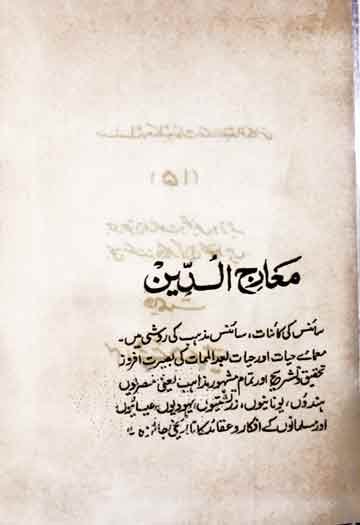 معارج الدّین
سائنس کی کائنات، سائنس مذہب کی روشنی میں۔
معمائے حیات اور حیات بعد الممات کی بصیرت افروز
تحقیق و تشریح اور تمام مشہور مذاہب یعنی مصریوں
ہندوں، یونانیوں، زرتشتیوں، یہودیوں، عیسائیوں
اور مسلمانوں کے افکار و عقائد کا تاریخی جائزہ